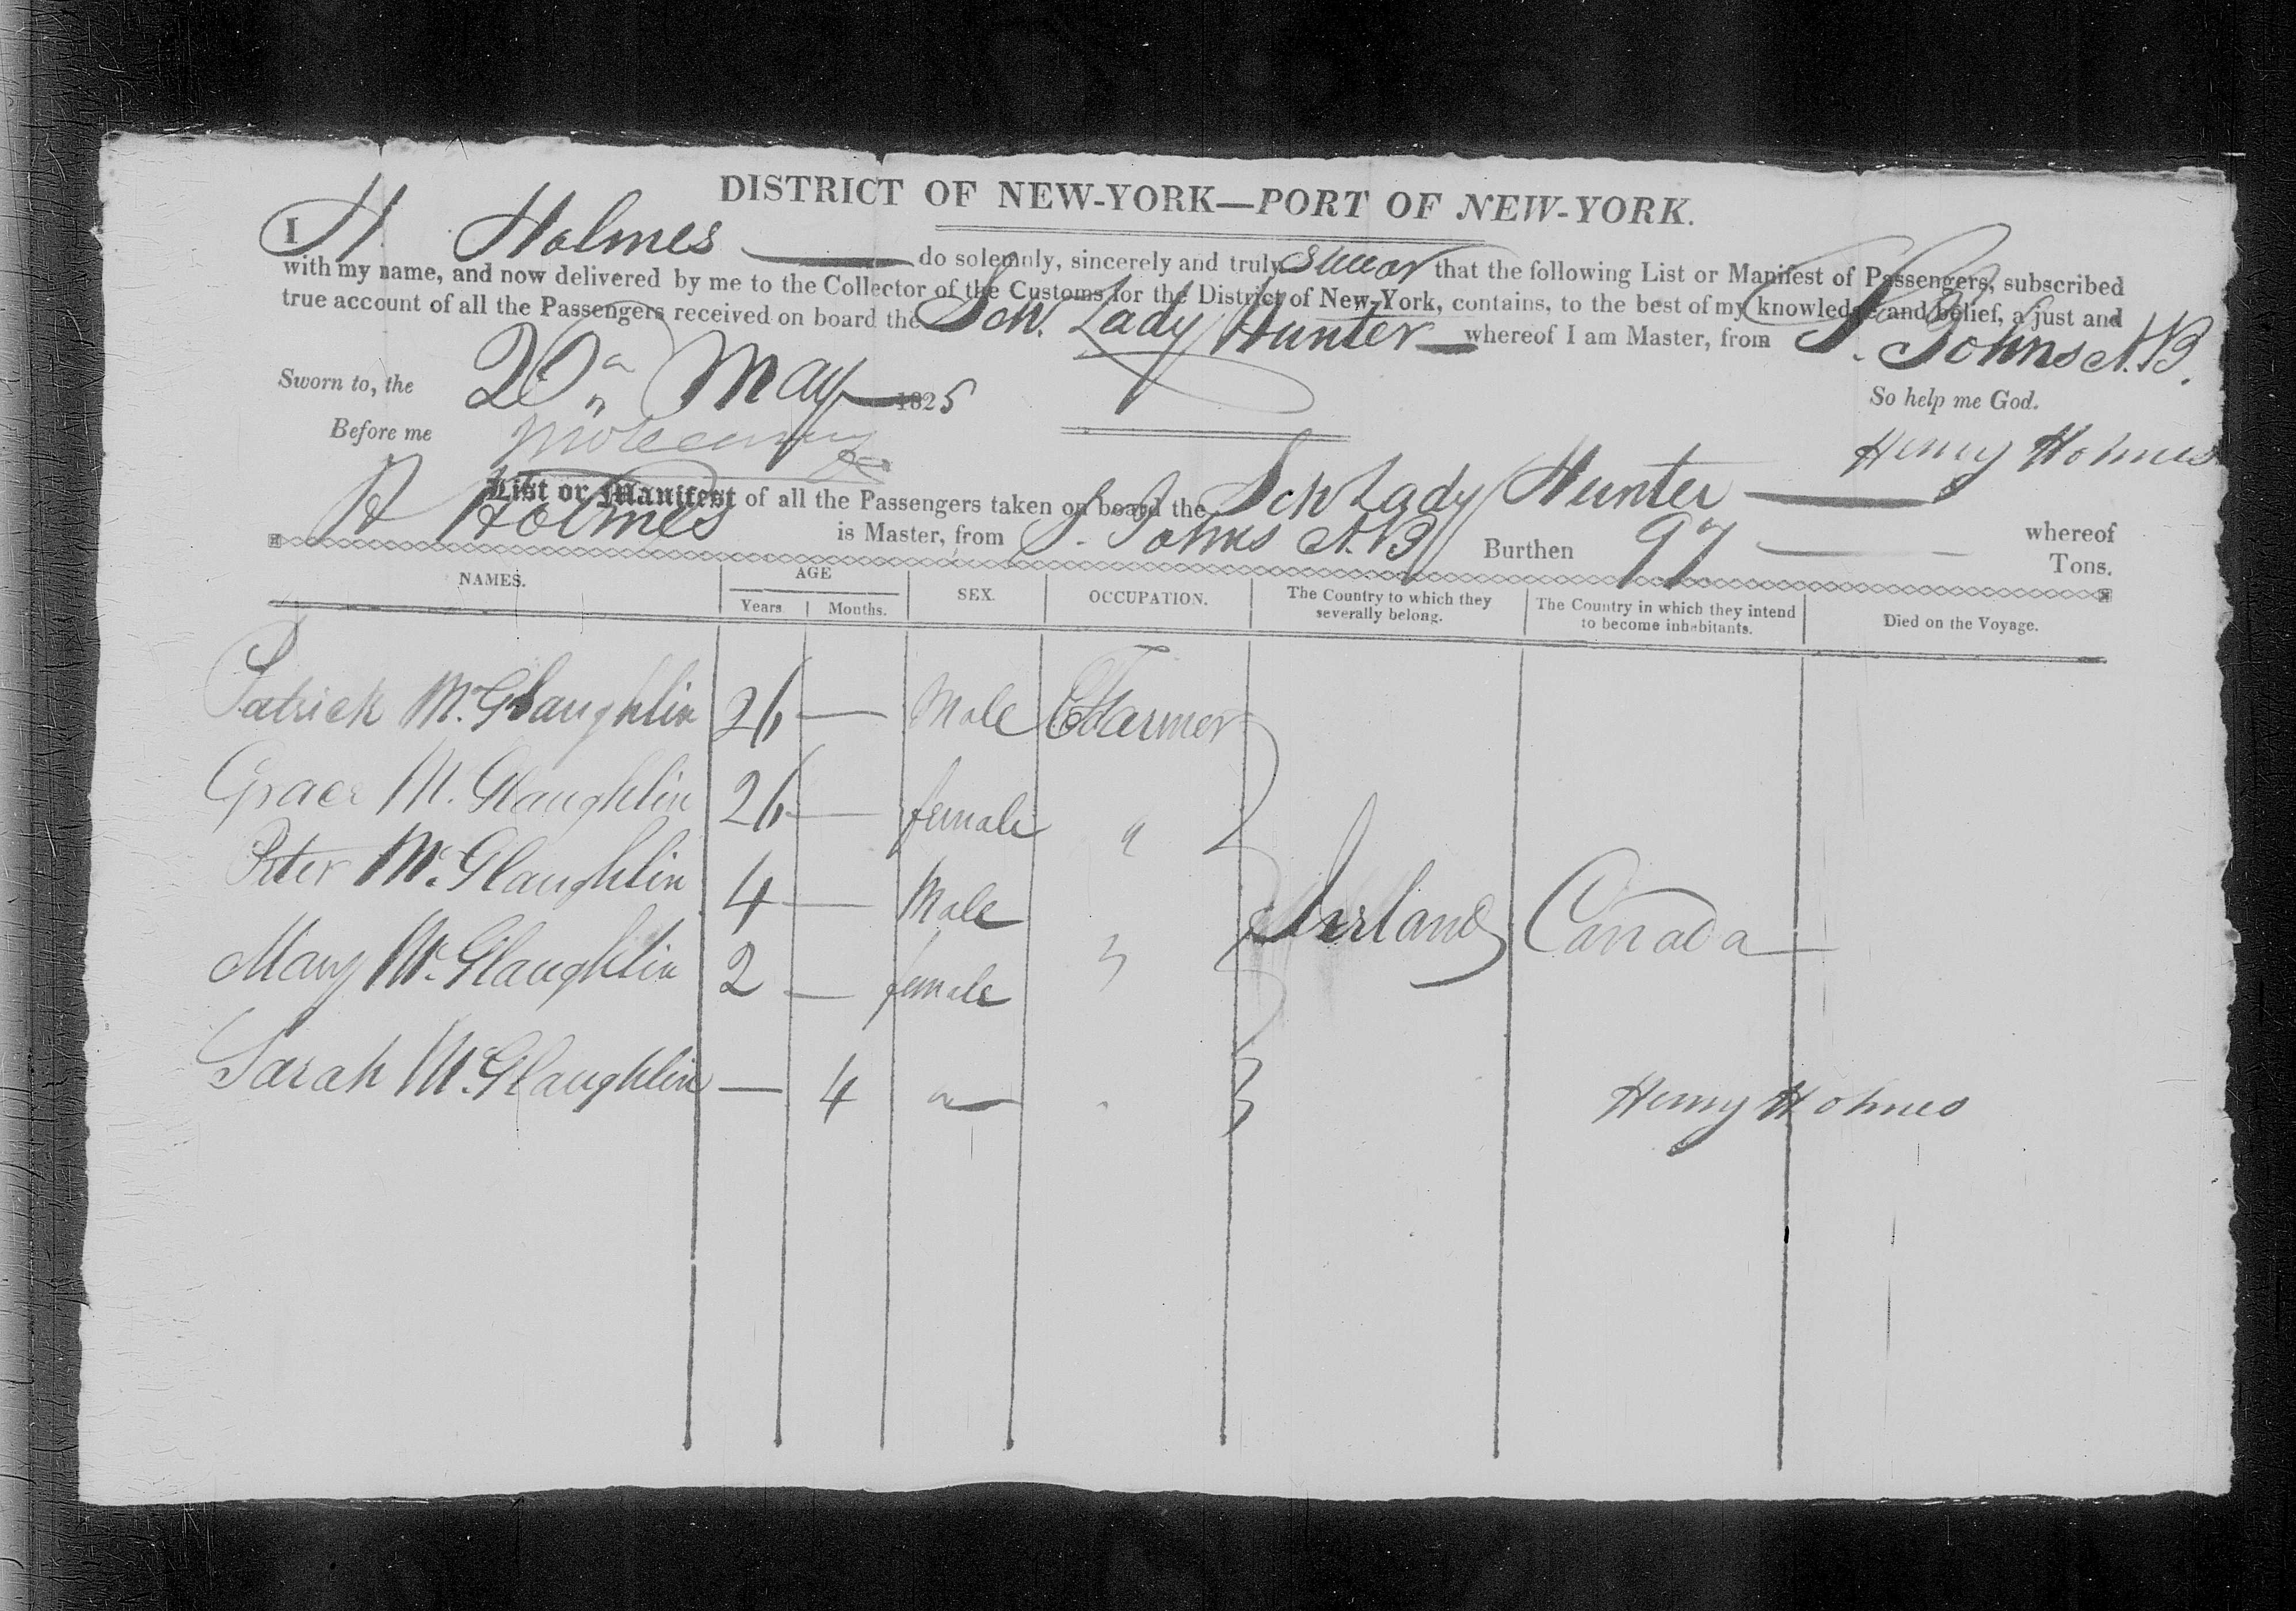 DISTRICT OF NEW-YORK—PORT OF NEW-YORK.
I H. Holmes do solemnly, sincerely and truly swear that the following List or Manifest of Passengers, subscribed
with my name, and now delivered by me to the Collector of the Customs for the District of New-York, contains, to the best of my knowledge and belief, a just and
true account of all the Passengers received on board the Sch. Lady Hunter whereof I am Master, from S. Johns N.B.
Sworn to, the 20 May 1825 So help me God.
Before me Henry Holmes
List or Manifest of all the Passengers taken on board the Sch Lady Hunter whereof
H Holmes is Master, from S. Johns N.B Burthen 97 Tons.
NAMES. AGE SEX. OCCUPATION. The Country to which they severally belong. The Country in which they intend to become inhabitants. Died on the Voyage.
Years. Months.
Patrick Mc. Glaughlin 26 — Male Farmer
Grace M. Glaughlin 26 — female "
Peter Mc. Glaughlin 4 — Male
Ireland Canada
Mary Mc. Glaughlin 2 — female "
Sarah Mc. Glaughlin — 4 "
Henry Holmes